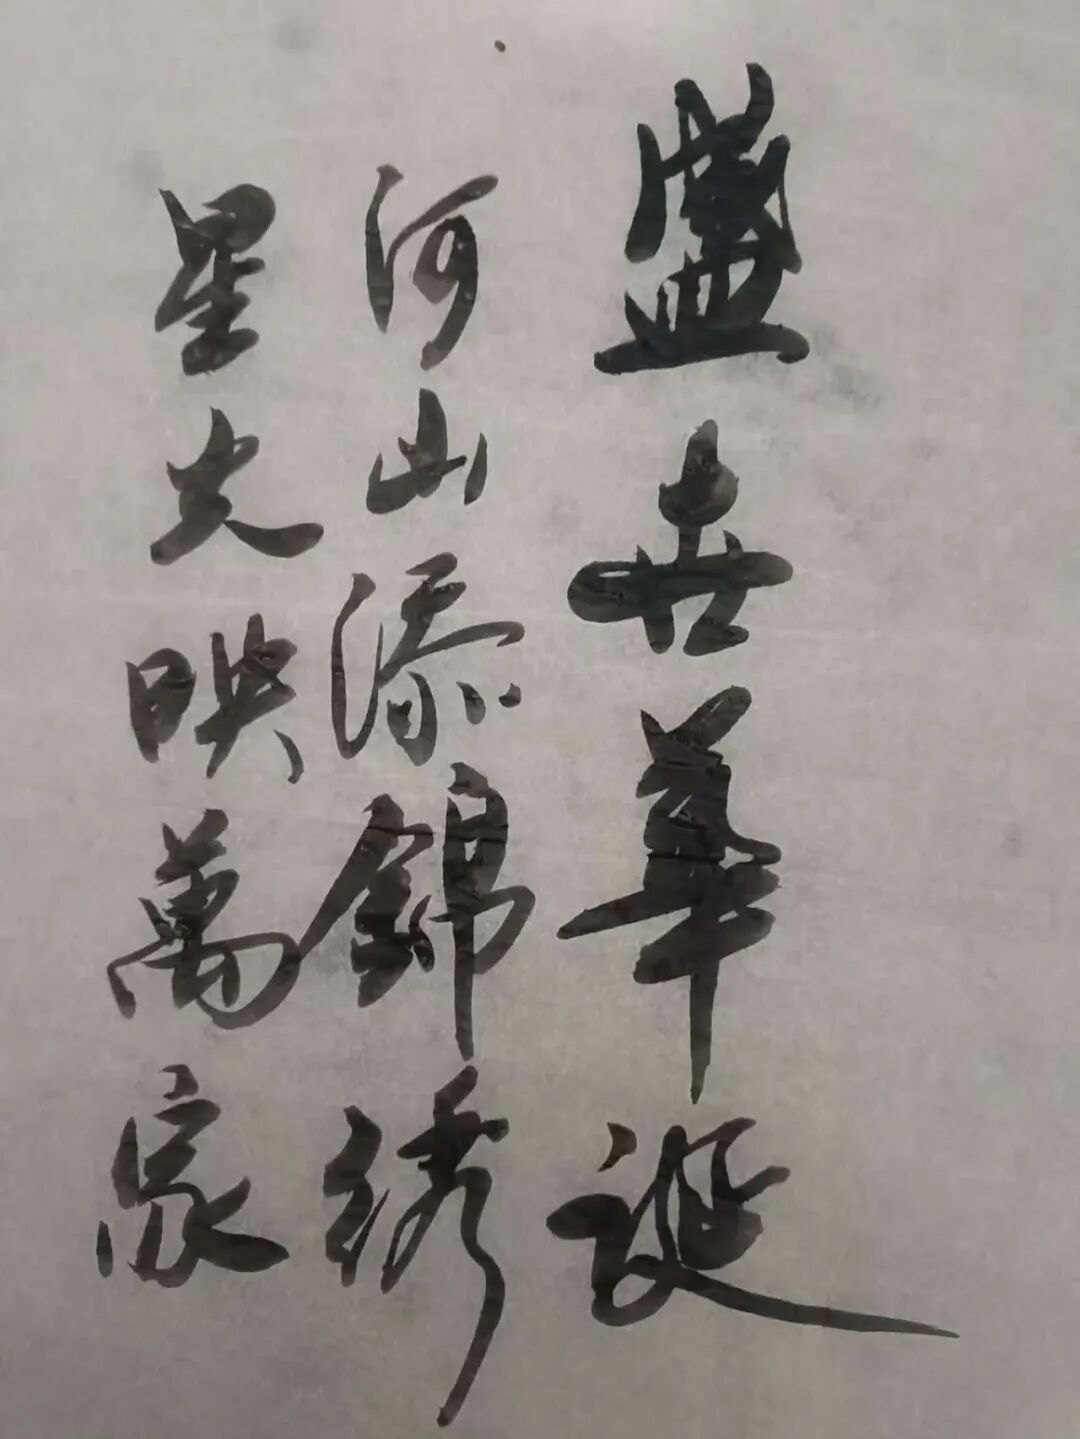 盛世華誕
河山添錦绣
星火映萬家